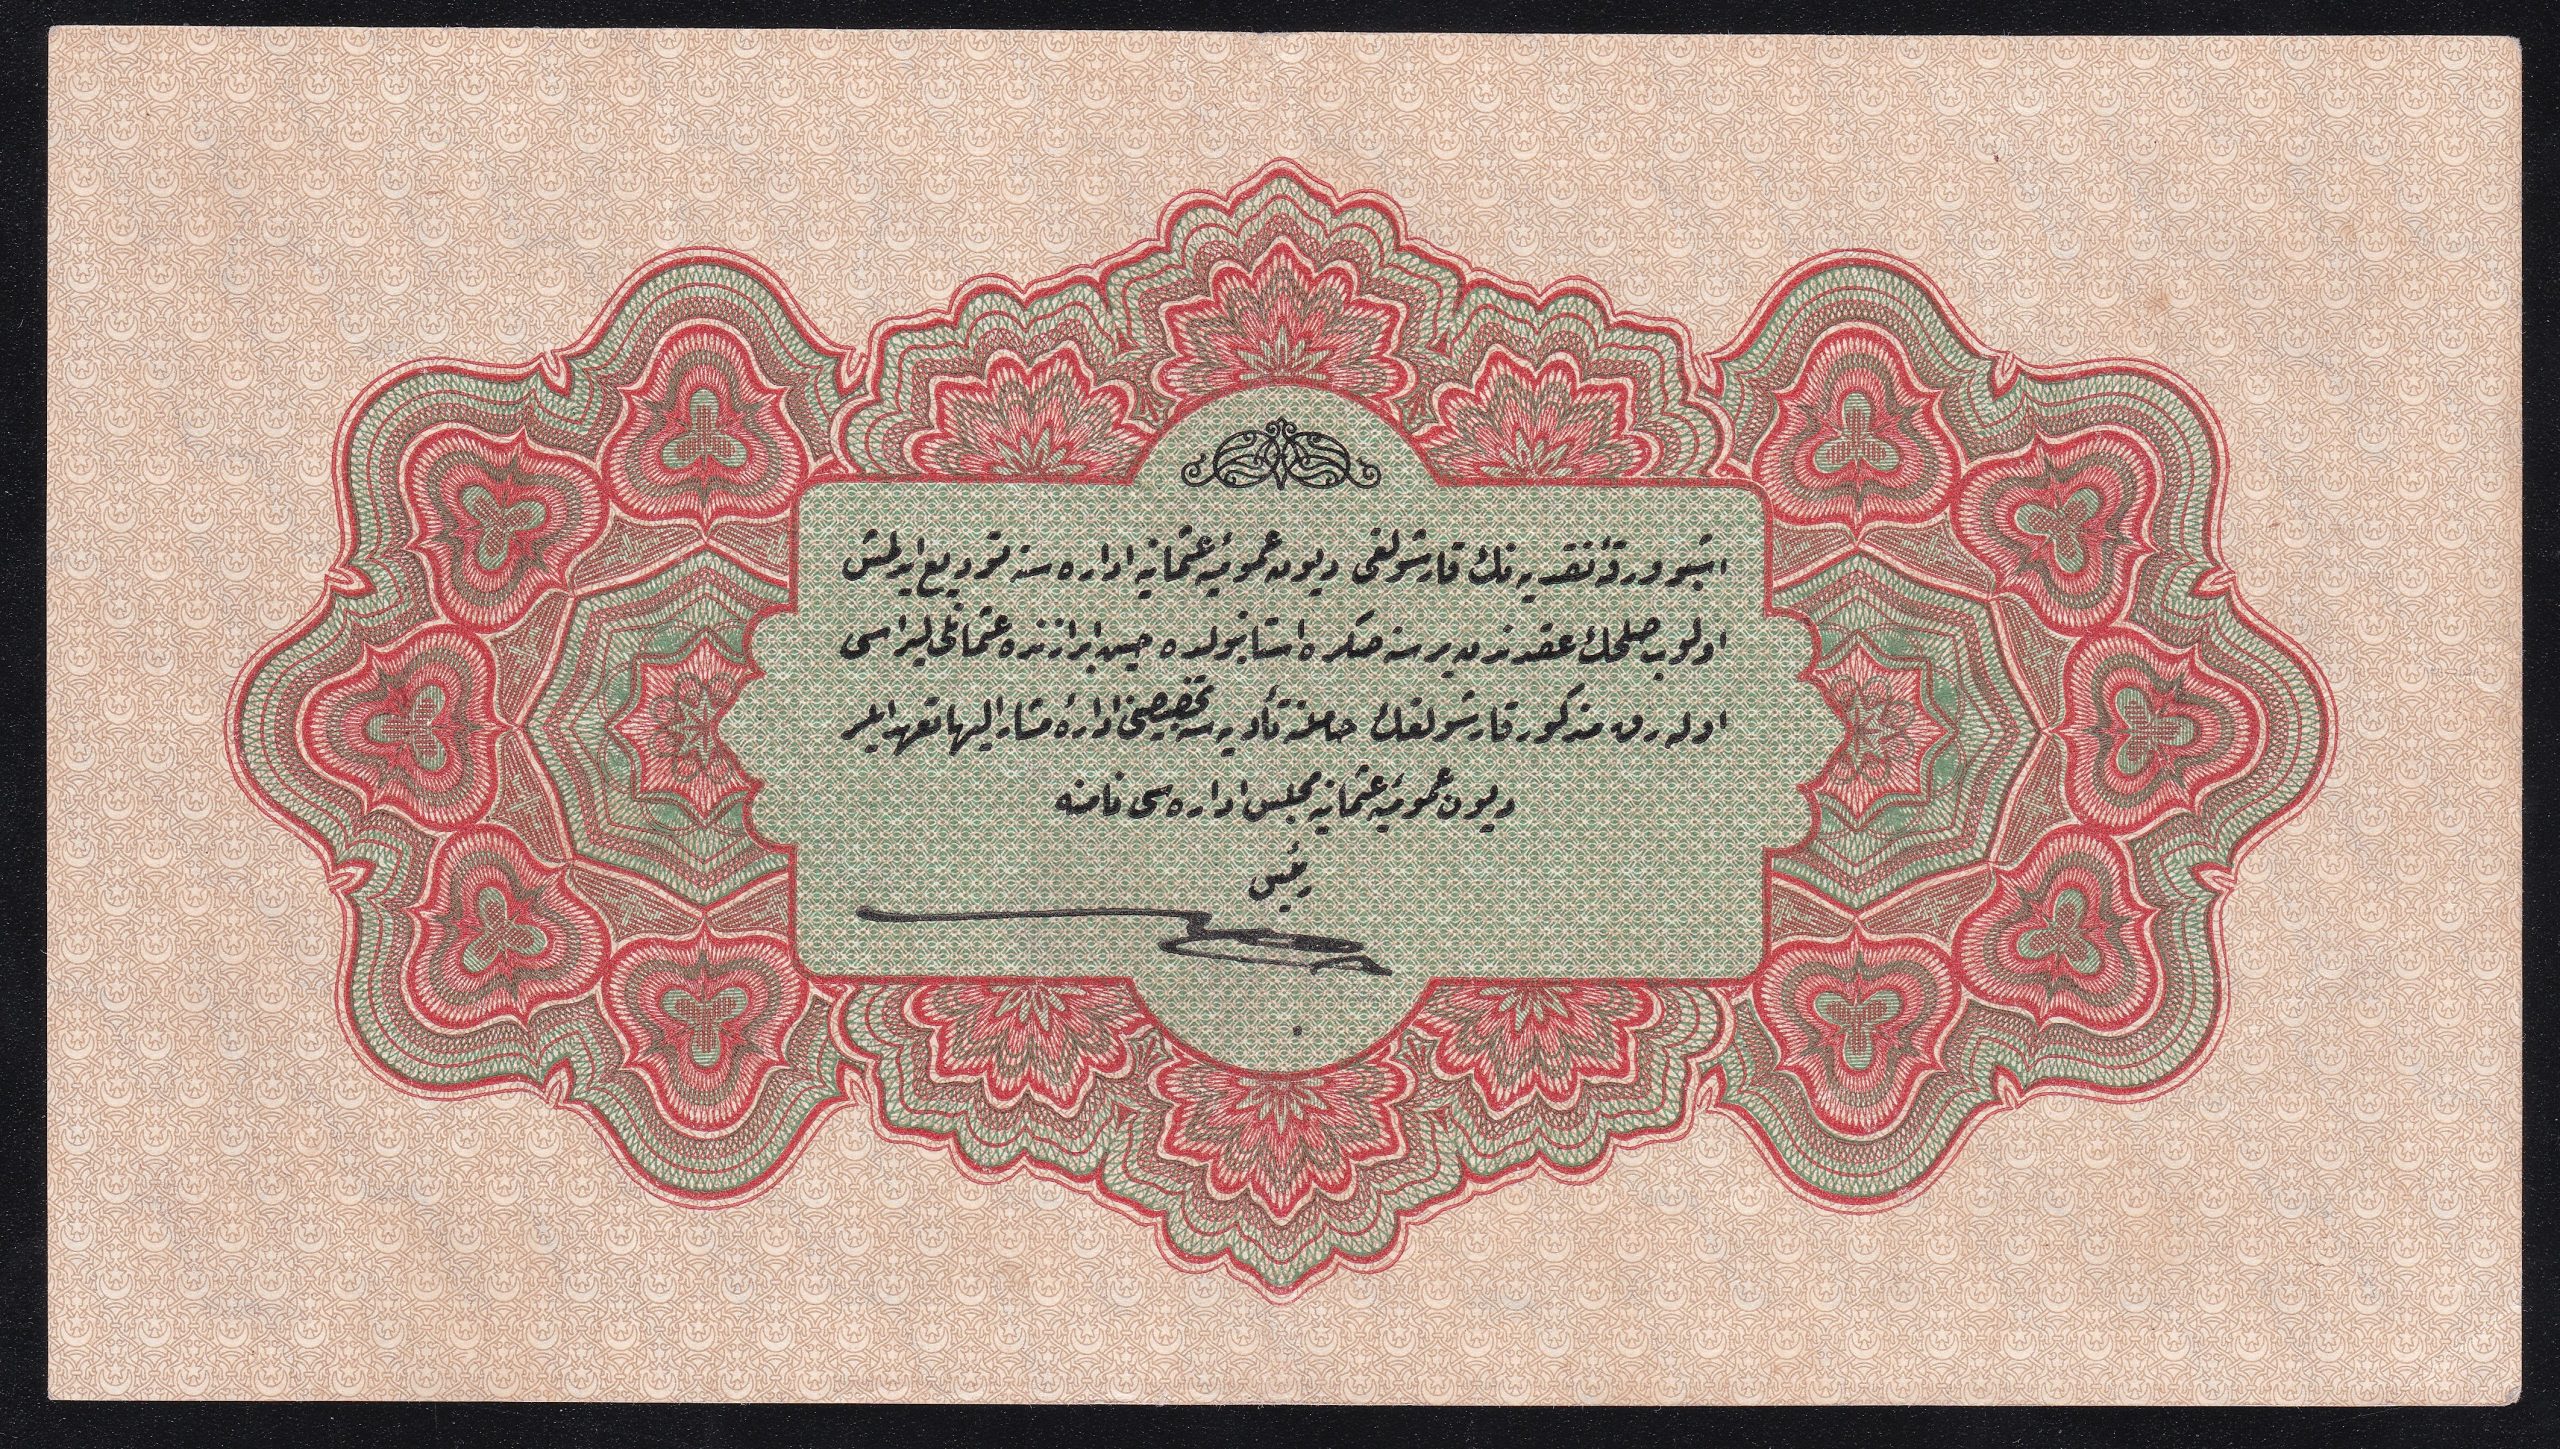 اشبو ورقهٔ نقدیه‌نك قارشولغی دیون عمومیهٔ عثمانیه اداره‌سنه تودیع ایدلمش
اولوب صلحك عقدندن بر سنه صكره استانبولده حین ابرازنده عثمانلی لیراسی
اوله‌رق مذكور قارشولغك حاملنه تأدیه‌سنه تخصیصنی ادارهٔ مشار الیها تعهد ایلر
دیون عمومیهٔ عثمانیه مجلس اداره‌سی نامنه
رئیس